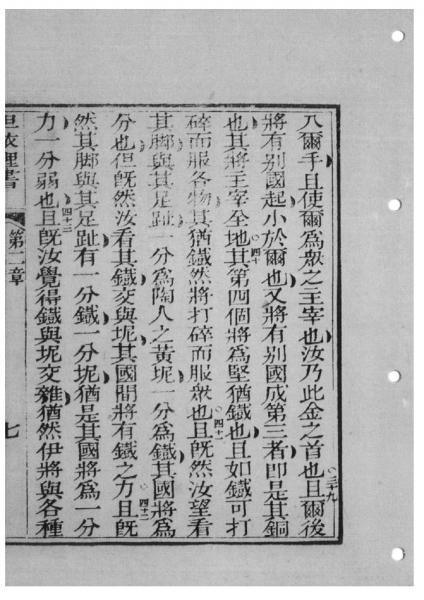 入爾手且使爾爲衆之主宰也汝乃此金之首也且爾後 三十九
將有别國起小於爾也又將有别國成第三者卽是其銅
也其將主宰全地其第四個將爲堅猶鐵也且如鐵可打 四十
碎而服各物其猶鐵然將打碎而服衆也且旣然汝望看 四十一
其脚與其足趾一分爲陶人之黄坭一分爲鐵其國將爲
分也但旣然汝看其鐵交與坭其國間將有鐵之力且旣 四十二
然其脚與其足趾有一分鐵一分坭猶是其國將爲一分
力一分弱也且旣汝覺得鐵與坭交雜猶然伊將與各種 四十三
但依理書 第二章 七